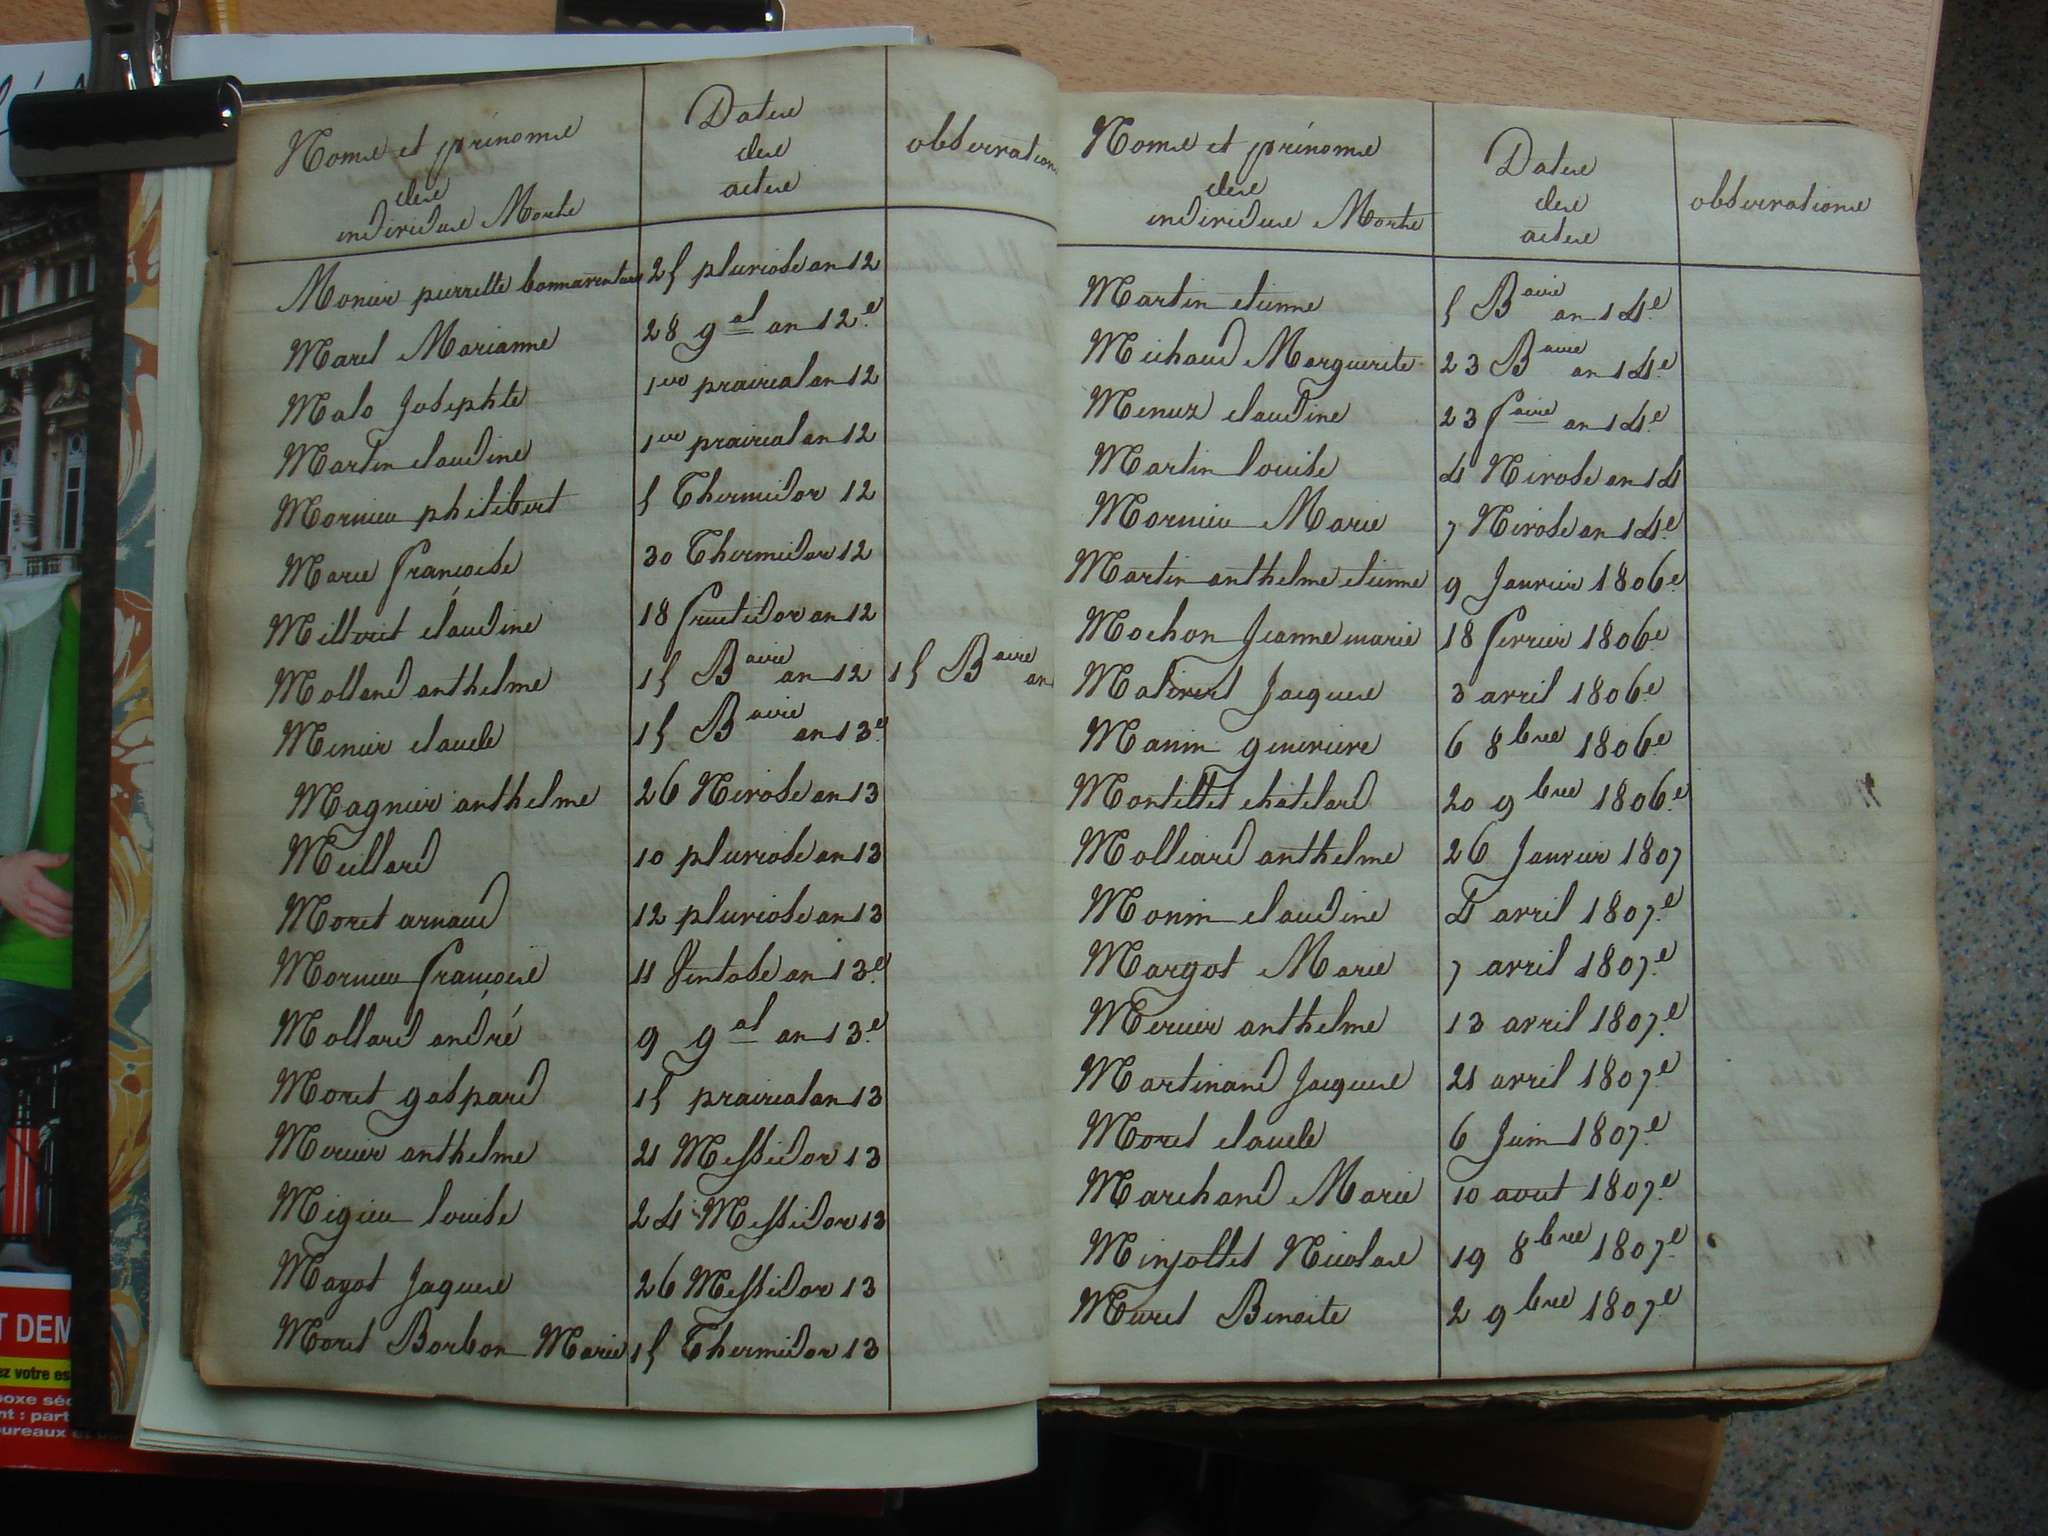 Noms et prénoms
des
individus Morts
Dates
des
actes
observation
Monier pierrette bonnaventure 25 pluviose an 12
Marel Marianne 28 gal an 12e
Malo Josephte 1er prairial an 12
Martin claudine 1er prairial an 12
Mornieu philibert 5 Thermidor 12
Marie françoise 30 Thermidor 12
Milleret claudine 18 fructidor an 12
Molland anthelme 15 Baire an 12 15 Baire an
Menier claude 15 Baire an 13e
Magnier anthelme 26 Nivose an 13
Meillard 10 pluviose an 13
Moret arnaud 12 pluviose an 13
Mornieu françoise 11 Ventose an 13e
Mollard andré 9 gal an 13e
Moret gaspard 15 prairial an 13
Mercier anthelme 21 Messidor 13
Migieu louise 24 Messidor 13
Mayot Jaques 26 Messidor 13
Moret Borbon Marie 15 Thermidor 13
Noms et prénoms
des
individus Morts
Dates
des
actes
observations
Martin etienne 5 Baire an 14e
Michaud Marguerite 23 Baire an 14e
Menuz claudine 23 faire an 14e
Martin louise 4 Nivose an 14
Mornieu Marie 7 Nivose an 14e
Martin anthelme etienne 9 Janvier 1806e
Mochon Jeanne marie 18 fevrier 1806e
Malivert Jacques 3 avril 1806e
Manin genevieve 6 8bre 1806e
Montillet chatelard 20 9bre 1806e
Molliard anthelme 26 Janvier 1807
Monin claudine 4 avril 1807e
Margot Marie 7 avril 1807e
Mercier anthelme 13 avril 1807e
Martinand Jacques 21 avril 1807e
Moret claude 6 Juin 1807e
Marchand Marie 10 aout 1807e
Minjollet Nicolas 19 8bre 1807e
Muret Benoite 2 9bre 1807e
T DEM
ez votre es
boxe séc
nt : part
bureaux et